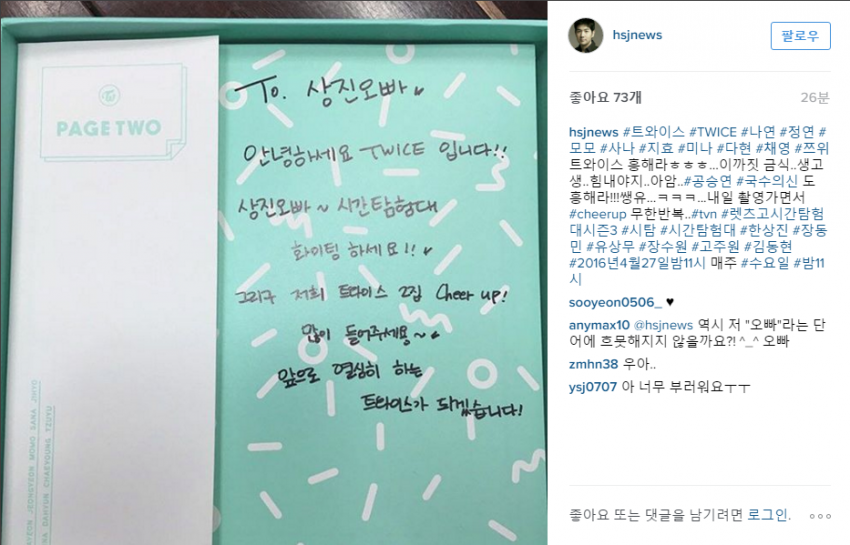 PAGE TWO
To. 상진오빠♥
안녕하세요 TWICE 입니다!!
상진오빠~ 시간탐험대
화이팅 하세요!! ♥
그리구 저희 트와이스 2집 Cheer up!
많이 들어주세용~♥
앞으로 열심히 하는
트와이스가 되겠습니다!
NAYEON JEONGYEON MOMO SANA JIHYO
MINA DAHYUN CHAEYOUNG TZUYU
hsjnews
팔로우
좋아요 73개
26분
hsjnews #트와이스 #TWICE #나연 #정연 #
모모 #사나 #지효 #미나 #다현 #채영 #쯔위
트와이스 흥해라ㅎㅎㅎ...이까짓 금식..생고
생..힘내야지..아암..#공승연 #국수의신 도
흥해라!!!쌩유...ㅋㅋㅋ...내일 촬영가면서
#cheerup 무한반복..#tvn #렛츠고시간탐험
대시즌3 #시탐 #시간탐험대 #한상진 #장동
민 #유상무 #장수원 #고주원 #김동현
#2016년4월27일밤11시 매주 #수요일 #밤11
시
sooyeon0506_ ♥
anymax10 @hsjnews 역시 저 "오빠"라는 단
어에 흐뭇해지지 않을까요?! ^_^ 오빠
zmhn38 우아..
ysj0707 아 너무 부러워요ㅜㅜ
좋아요 또는 댓글을 남기려면 로그인.